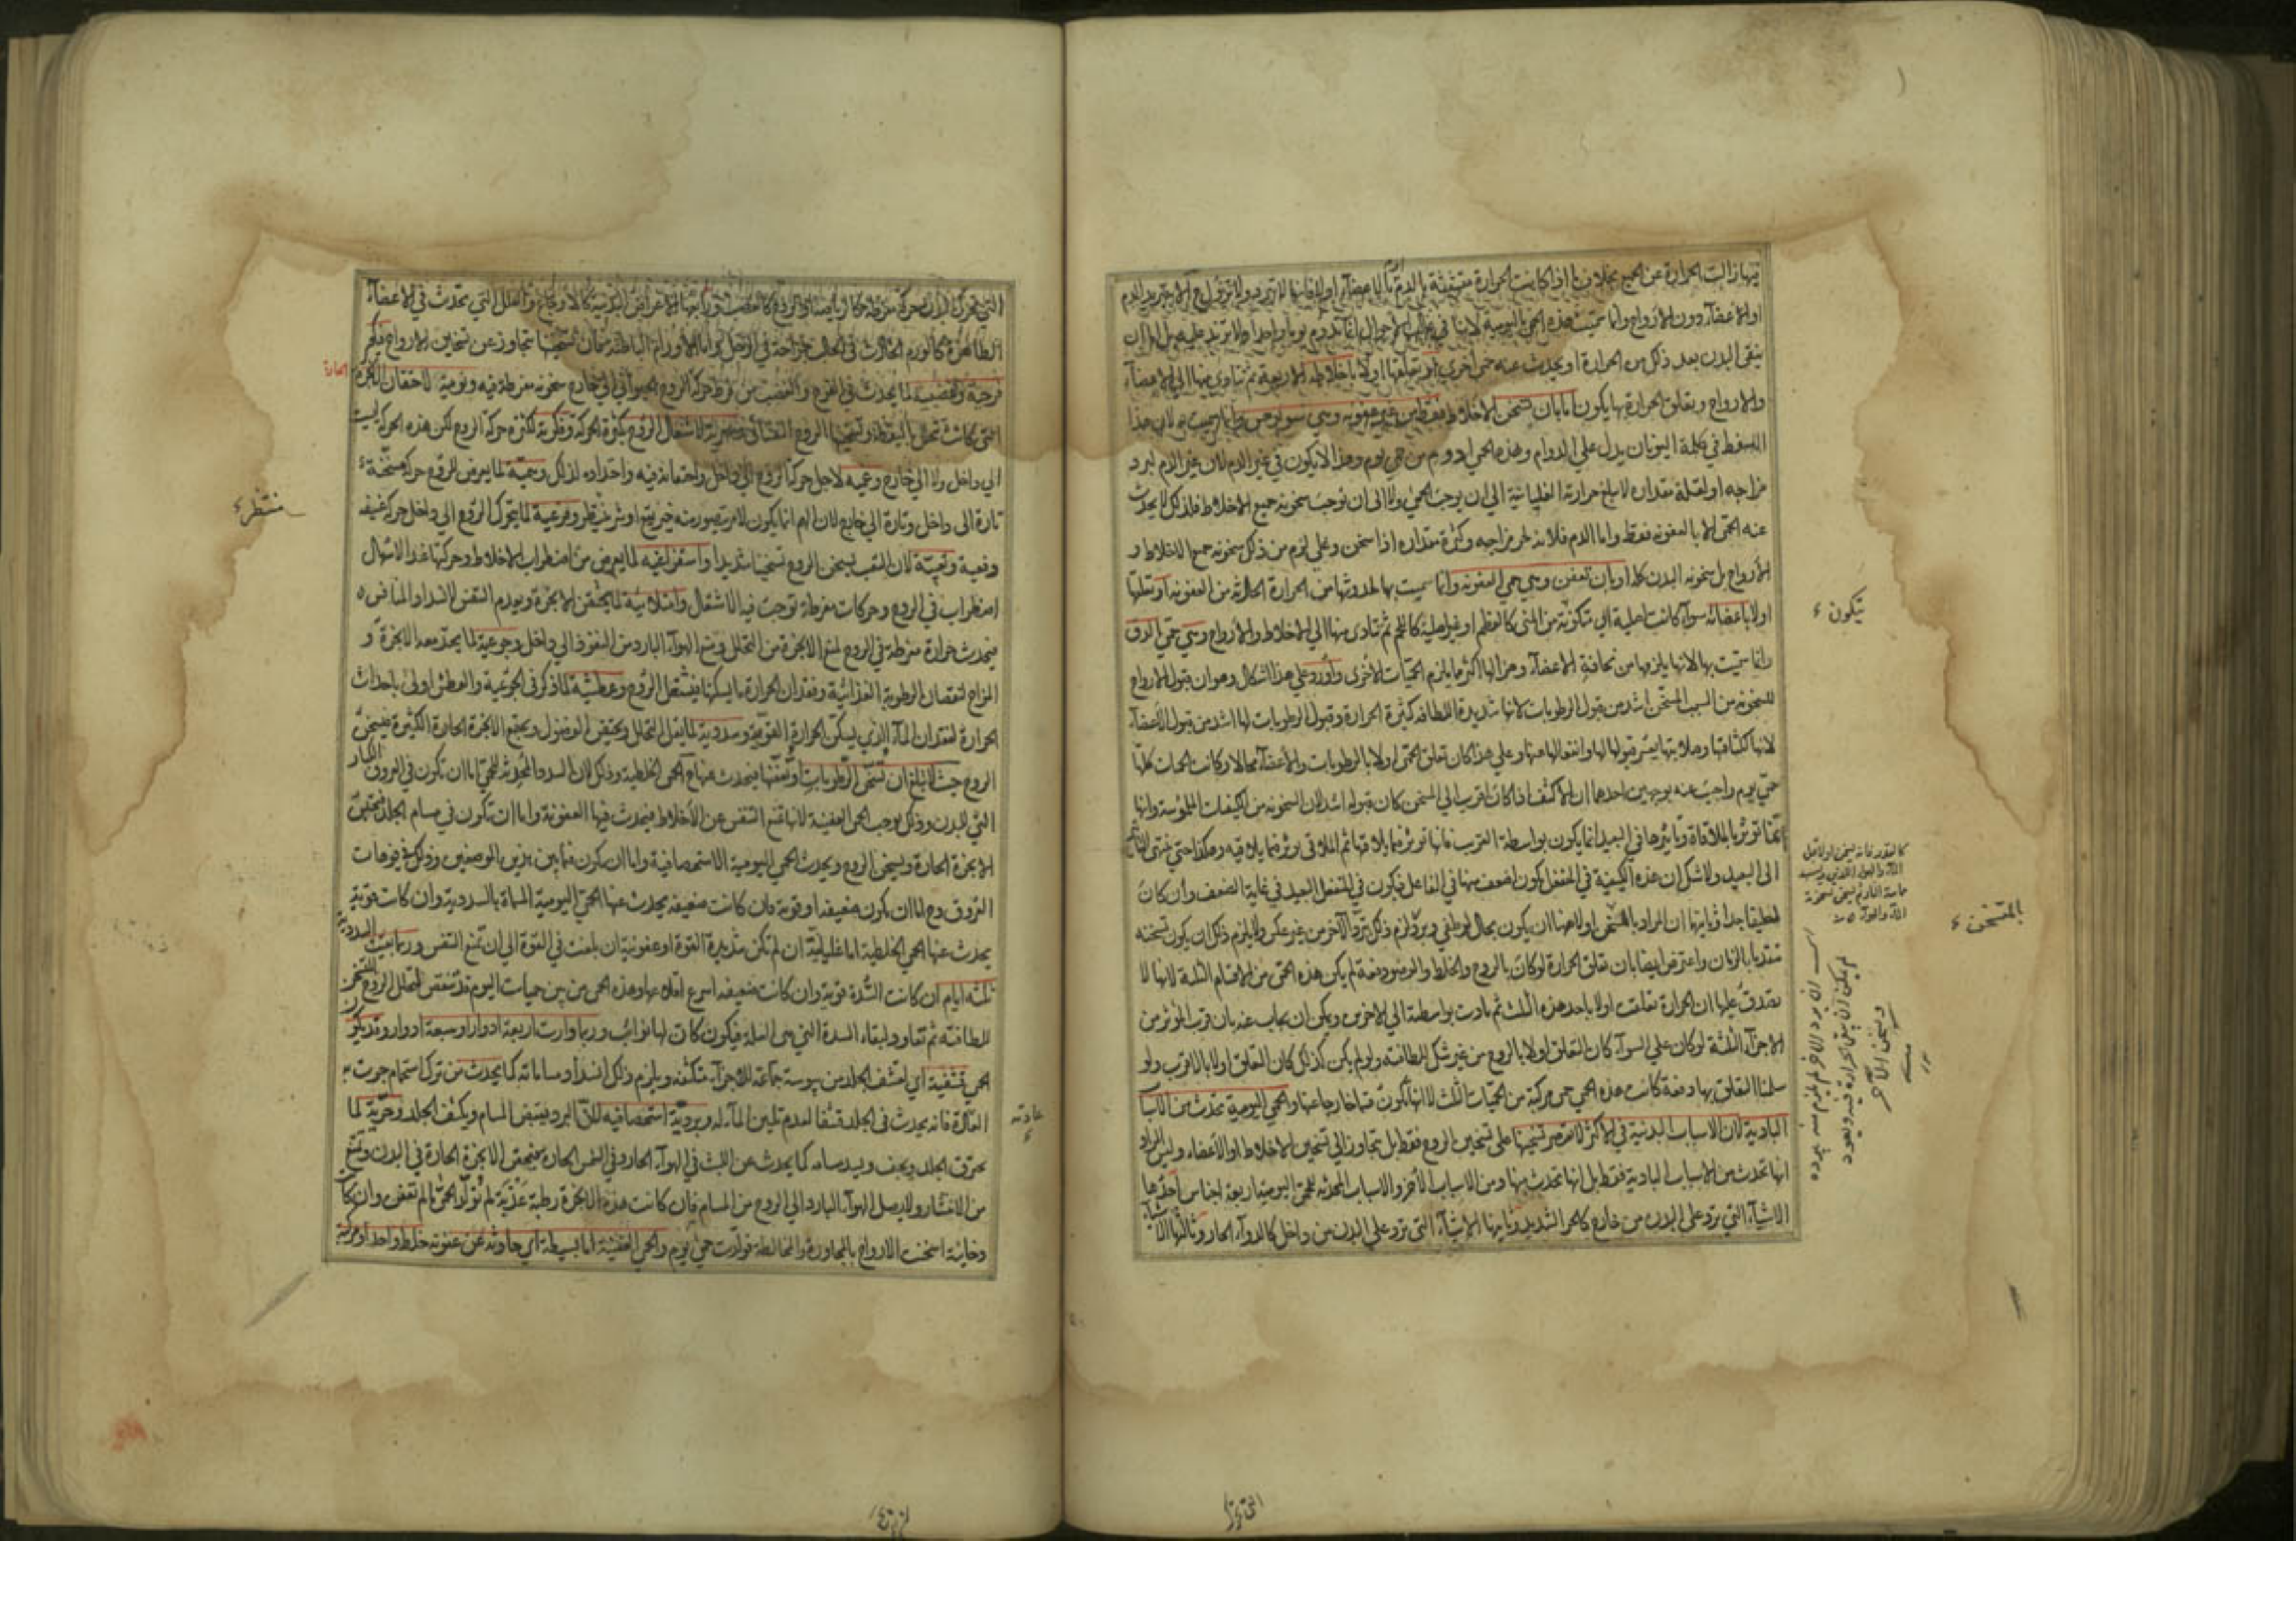 فيها زالت الحرارة عن الجميع بخلاف ما اذا كانت الحرارة متشبثة بالدم او بالاعضاء اولا فانها لا تبرد ولا تزول الا بتبريد الدم
او الاعضاء دون الارواح وانما سميت هذه الحمى باليومية لانها في غالب الاحوال انما تدوم يوما واحدا ولا تزيد عليه بل اما ان
ينقى البدن بعد ذلك من الحرارة او يحدث عنه حمى اخرى او تعلقها اولا باخلاطه الاربعة ثم تتادى منها الى الاعضاء
والارواح وتعلق الحرارة بها يكون اما بان تسخن الاخلاط فقط من غير عفونة وهي سونوخس وانما سميت به لان هذا
اللفظ في كلمة اليونان يدل على الدوام وهذه الحمى ادوم من حمى يوم وهذا لا يكون في غير الدم لان غير الدم لبرد
مزاجه او لقلة مقداره لا يبلغ حرارته الغليانية الى ان يوجب الحمى ولا الى ان توجب سخونة جميع الاخلاط فلذلك لا يحدث
عنه الحمى الا بالعفونة فقط واما الدم فلانه لحر مزاجه وكثرة مقداره اذا سخن وغلى لزم من ذلك سخونة جميع الاخلاط و
الارواح بل سخونة البدن كله او بان تعفن وهي حمى العفونة وانما سميت بها لحدوثها من الحرارة الحادثة من العفونة او تعلقها
اولا باعضائه سواء كانت اصلية اي متكونة من المنى كالعظم او غير اصلية كاللحم ثم تتادى منها الى الاخلاط والارواح وهي حمى الدق
وانما سميت بها لانها يلزمها من نحافة الاعضاء وهزالها اكثر ما يلزم الحميات الاخرى واورد على هذا اشكال وهو ان قبول الارواح
للسخونة من السبب المسخن اشد من قبول الرطوبات لانها شديدة اللطافة كثيرة الحرارة وقبول الرطوبات لها اشد من قبول الاعضاء
لانها لكثافتها وصلابتها يعسر قبولها لها وانفعالها عنها وعلى هذا كان تعلق الحمى اولا بالرطوبات والاعضاء محالا وكانت الحميات كلها
حمى يوم واجيب عنه بوجهين احدهما ان الاكثف اذا كان اقرب الى المسخن كان قبوله اشد لان السخونة من الكيفيات الملموسة وانها
انما تؤثر بالملاقاة وتاثيرها في البعيد انما يكون بواسطة القريب فانها تؤثر فيما يلاقيها ثم الملاقي يؤثر فيما يلاقيه وهكذا حتى ينتهى التاثير
الى البعيد ولا شك ان هذه الكيفية في المنفعل يكون اضعف منها في الفاعل فيكون في المنفعل البعيد في غاية الضعف وان كان
لطيفا جدا وثانيها ان المراد بالمتسخن اولا هنا ان يكون بحال لو طفى وبرد لزم ذلك برد الاخر من غير عكس ولا يلزم ذلك ان يكون تسخنه
متقدما بالزمان واعترض ايضا بان تعلق الحرارة لو كان بالروح والخلط والعضو دفعة لم يكن هذه الحمى من الاقسام الثلثة لانها لا
يصدق عليها ان الحرارة تعلقت اولا باحد هذه الثلث ثم تادت بواسطته الى الاخرين ويمكن ان يجاب عنه بان قرب المؤثر من
الاجزاء الثلثة لو كان على السواء كان التعلق اولا بالروح من غير شك للطافته ولو لم يكن كذلك كان التعلق اولا بالاقرب ولو
سلمنا التعلق بها دفعة كانت هذه الحمى حمى مركبة من الحميات الثلث لا انها تكون قسما خارجا عنها والحمى اليومية تحدث من الاسباب
البادية لان الاسباب البدنية في الاكثر لا تقتصر تسخينها على تسخين الروح فقط بل تتجاوز الى تسخين الاخلاط او الاعضاء وليس المراد
انها تحدث من الاسباب البادية فقط بل انها تحدث منها ومن الاسباب الاخر والاسباب المحدثة للحمى اليومية اربعة اجناس احدها
الاشياء التي ترد على البدن من خارج كالحر الشديد وثانيها الاشياء التي ترد على البدن من داخل كالدواء الحار وثالثها الاشياء
يتكون
بالمتسخن
لم يمكن ان يبقى الحرارة فيه ويعود
ويسخن الآخر
التي تحرك
التي تحرك البدن حركة مفرطة كالرياضة او الروح كالغضب ورابعها الاعراض البدنية كالاوجاع والعلل التي تحدث في الاعضاء
الظاهرة كالورم الحادث في الحالب لجراحة في الرجل واما الاورام الباطنة فان تسخينها تتجاوز عن تسخين الارواح فتكون
فرحية وغضبية لما يحدث في الفرح والغضب من فرط حركة الروح الحيواني الى خارج سخونة مفرطة فيه ونومية لاحتقان الابخرة
الحارة
التي كانت تتحلل باليقظة وتسخينها الروح النفساني وسهرية لاشتعال الروح بكثرة الحركة وفكرية لكثرة حركة الروح لكن هذه الحركة ليست
الى داخل ولا الى خارج وغمية لاجل حركة الروح الى داخل واحتقانه فيه واحتداده لذلك وهمية لما يعرض للروح حركة مسخنة
تارة الى داخل وتارة الى خارج لان الهم انما يكون لامر يتصور منه خير يقع او شر ينتظر وفزعية لما يتحرك الروح الى داخل حركة عنيفة
منتظر
دفعية وتعبية لان التعب يسخن الروح تسخينا شديدا واستفراغية لما يعرض من اضطراب الاخلاط وحركتها عند الاسهال
اضطراب في الروح وحركات مفرطة توجب فيه الاشتعال وامتلائية لما يحتقن الابخرة ويعدم التنفس لانسداد المنافس
فيحدث حرارة مفرطة في الروح لمنع الابخرة من التحلل ومنع الهواء البارد من النفوذ الى داخل وجوعية لما يحتد معه الابخرة و
المزاج لنقصان الرطوبة الغذائية وفقدان الحرارة ما يسكنها فيشتعل الروح وعطشية لما ذكر في الجوعية والعطش اولى باحداث
الحرارة لفقدان الماء الذي يسكن الحرارة القوية وسددية لما يقل التحلل ويحتقن الفضول ويجتمع الابخرة الحارة الكثيرة فيسخن
الروح حيث لا تبلغ ان تسخن الرطوبات او تعفنها فيحدث عنها ح الحمى الخلطية وذلك لان السدد المحدثة للحمى اما ان تكون في العروق الكبار
التي للبدن وذلك يوجب الحمى العفنية لانها تمنع التنفس عن الاخلاط فيحدث فيها العفونة واما ان تكون في مسام الجلد فتحتقن
الابخرة الحارة ويسخن الروح ويحدث الحمى اليومية الاستحصافية واما ان يكون فيما بين هذين الموضعين وذلك في فوهات
العروق وح اما ان يكون ضعيفة او قوية فان كانت ضعيفة يحدث عنها الحمى اليومية المسماة بالسددية وان كانت قوية
يحدث عنها الحمى الخلطية اما غليانية ان لم تكن شديدة القوة او عفونية ان بلغت في القوة الى ان تمنع التنفس وربما بقيت السددية
ثلثة ايام ان كانت السدة قوية وان كانت ضعيفة اسرع اقلاعها وهذه الحمى من بين حميات اليوم قد تنقص لتحلل الروح المتسخن
للطافته ثم تعاود لبقاء السدة التي هي العلة فيكون كان لها نوائب وربما دارت اربعة ادوار او سبعة ادوار وقد يكون
الحمى قشفية اي لقشف الجلد من يبوسة جماعة للاجزاء مكثفة ويلزم ذلك انسداد مساماته كما يحدث من ترك استحمام جرت به
العادة فانه يحدث في الجلد قشفا لعدم تليين الماء له وبردية استحصافية لان البرد يقبض المسام ويكثف الجلد وحرية لما
عادته
يحرق الجلد ويجف ويسد مسامه كما يحدث عن اللبث في الهواء الحار وفي الشمس الحارة فيحتقن الابخرة الحارة في البدن ويمنع
من الانتشار ولا يصل الهواء البارد الى الروح من المسام فان كانت هذه الابخرة رطبة عذبة لم تولد الحمى ما لم تعفن وان كانت
دخانية اسخنت الارواح بالمجاورة والمخالطة فولدت حمى يوم والحمى العفنية اما بسيطة اي حادثة عن عفونة خلط واحد او مركبة